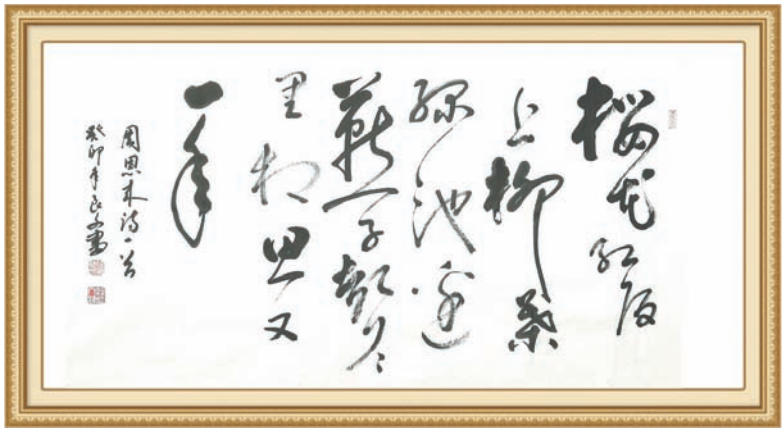 樱花红陌
上柳葉
绿池边
燕子聲々
里相思又
一年
周恩来诗一首
癸卯年良書